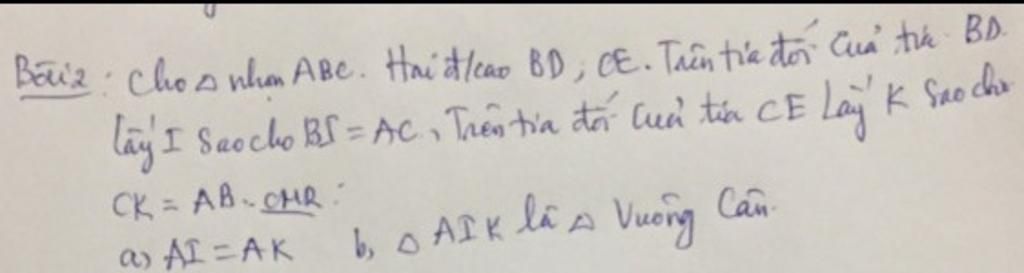 Bài 2: Cho △ nhọn ABC. Hai đ/cao BD, CE. Trên tia đối của tia BD.
lấy I sao cho BI = AC, Trên tia đối của tia CE Lấy K sao cho
CK = AB. CMR:
a) AI = AK b, △ AIK là △ Vuông Cân.